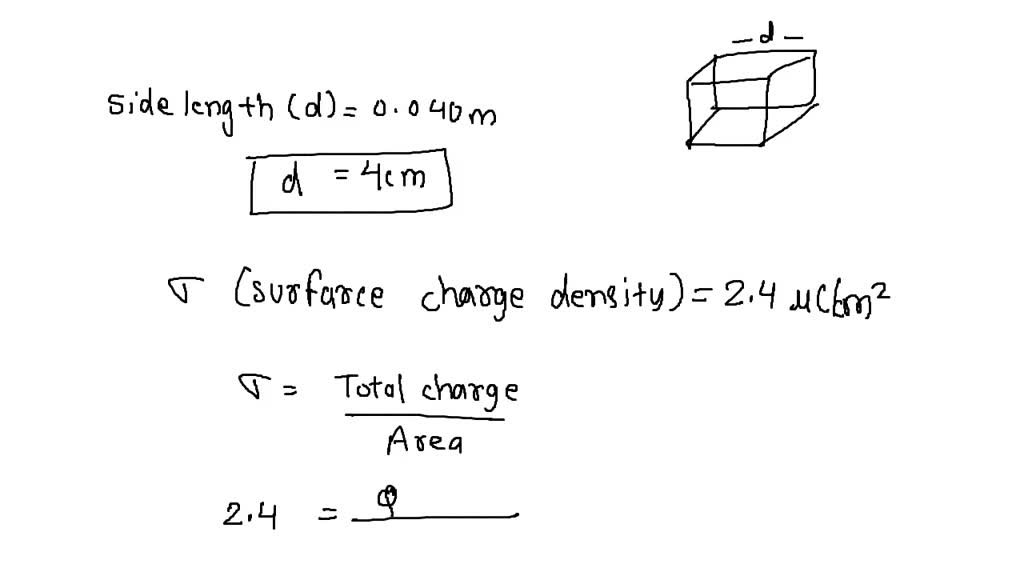 – d –
Side length (d) = 0.040m
d = 4cm
σ (surfarce charge density) = 2.4 μC/cm²
σ = Total charge
Area
2.4 = Q